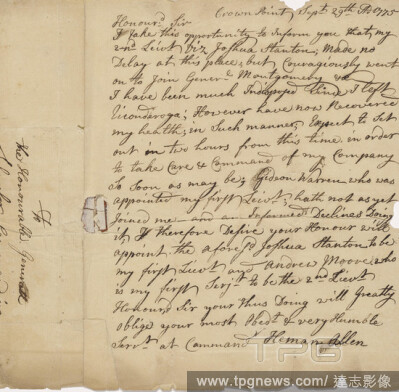 Crown Point, Sept. 29th AD 1775
Honour'd Sir
I take this opportunity to Inform you that my
2nd Lievt viz Joshua Stanton, made no
Delay at this place, but Couragiously went
on to Join Gener'l Montgomery &c
I have been much Indisposed Since I left
Ticonderoga; However have now Recovered
my health, in Such manner, Expect to Set
out in two hours from this time in order
to take Care & Command of my Company
So Soon as may be; Gideon Warren who was
appointed my first Lievt, hath not as yet
Joined me and am Informed Declines Doing
it, I therefore Desire your Honour will
appoint the afores'd Joshua Stanton to be
my first Lievt and Andrew Moore who
is my first Serjt to be the 2nd Lievt
Honour'd Sir your thus Doing will Greatly
oblige your most Obedt & very Humble
Servt at Command
Heman Allen
To
the Honourable General
TPG
www.tpgnews.com / 達志影像